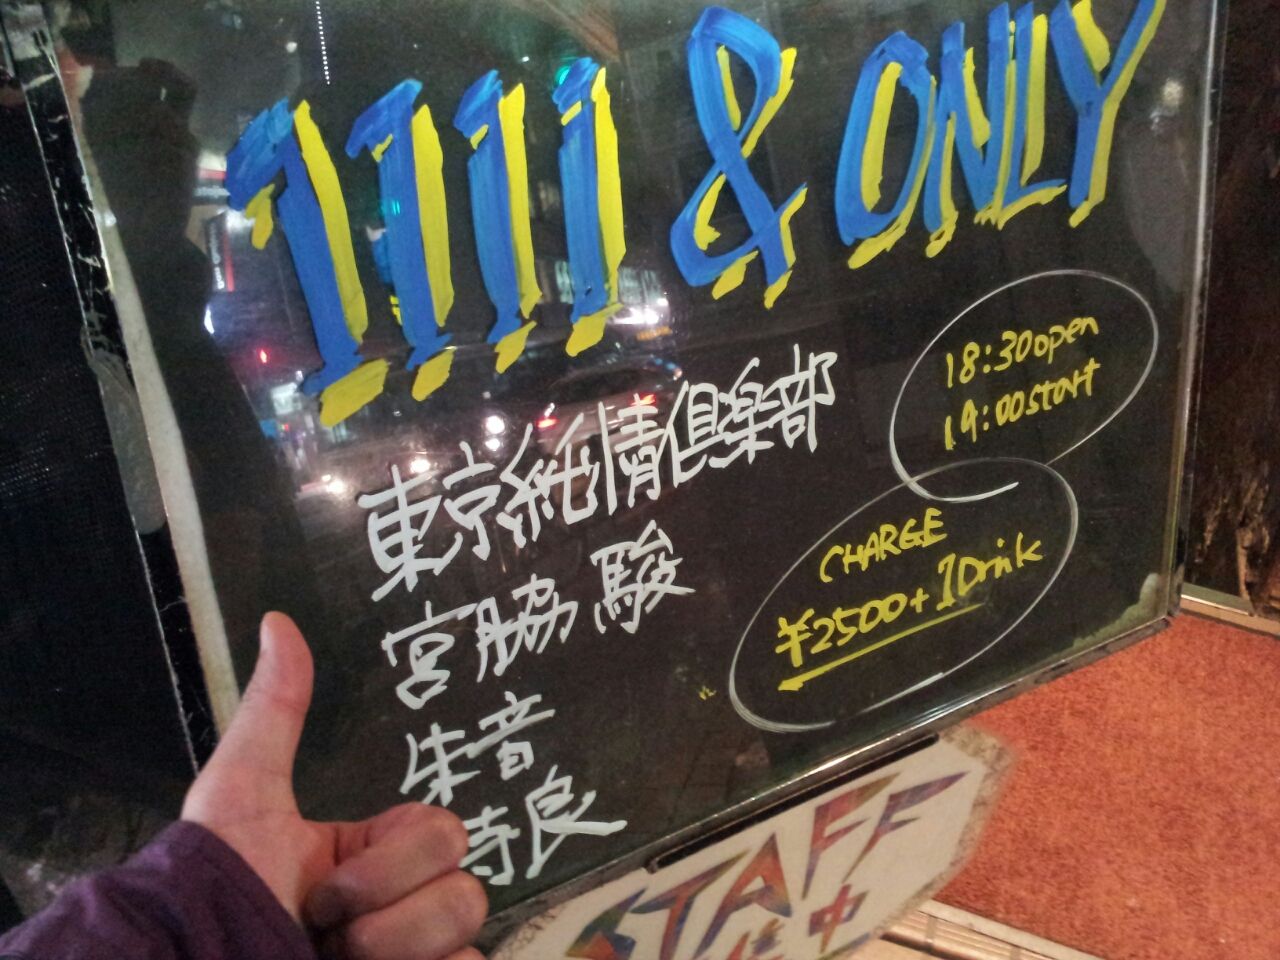 1111 & ONLY
18:30open
19:00start
東京純情倶楽部
宮脇 駿
朱音
寺良
CHARGE
¥2500+1Drink
STAFF
中